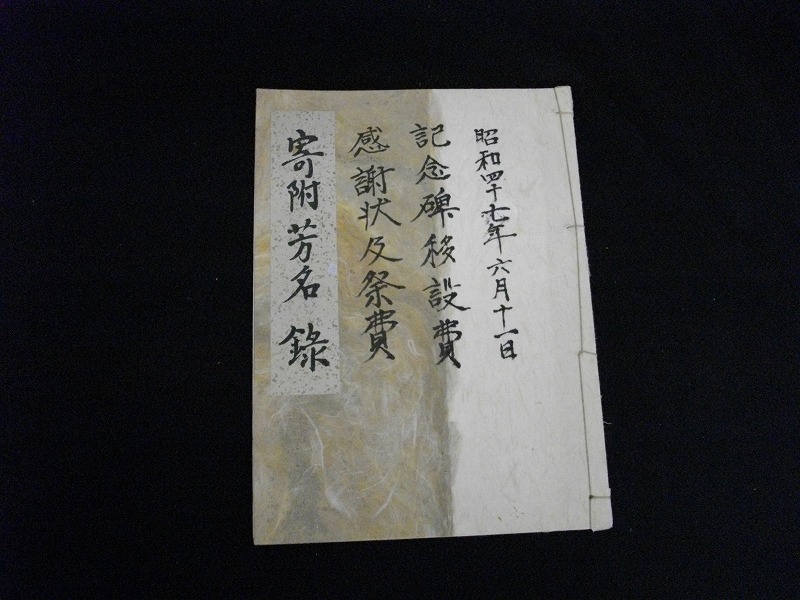 昭和四十七年六月十一日
記念碑移設費
感謝状及祭費
寄附芳名録